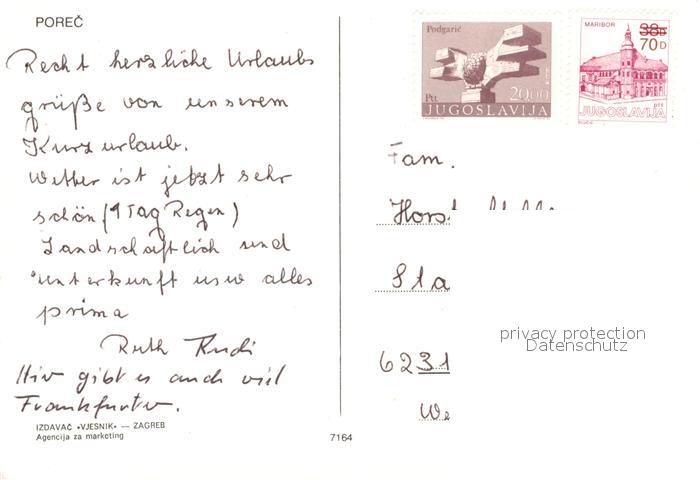 POREČ
Recht herzliche Urlaubs
grüße von unserem
Kurzurlaub.
Wetter ist jetzt sehr
schön (1 Tag Regen)
Landschaftlich und
unterkunft usw alles
prima
Ruth Rudi
Hier gibt es auch viel
Frankfurter.
IZDAVAČ «VJESNIK» — ZAGREB
Agencija za marketing
7164
Podgarić
Ptt
20.00
JUGOSLAVIJA
MARIBOR
38D
70D
ptt
JUGOSLAVIJA
Fam.
Hors
Sta
privacy protection
Datenschutz
6231
We